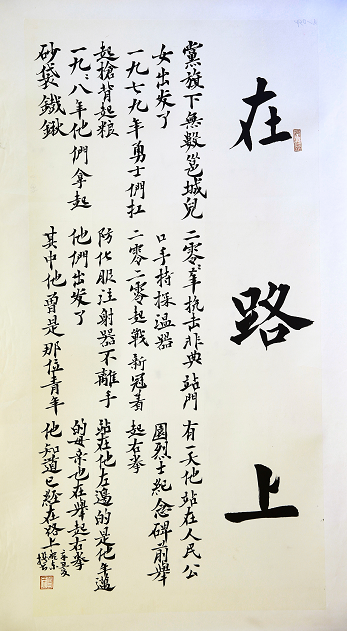 在路上
黨旗下無數邕城兒
女出发了
一九七九年勇士們扛
起槍背起粮
一九〻八年他們拿起
砂袋鐵鍬
二零〻三年抗击非典站門
口手持探温器
二零二零起戰新冠着
防化服注射器不離手
他們出发了
其中他曾是那位青年
有一天他站在人民公
園烈士紀念碑前舉
起右拳
站在他左邊的是他年邁
的母亲也在舉起右拳
他知道已經在路上
辛丑夏